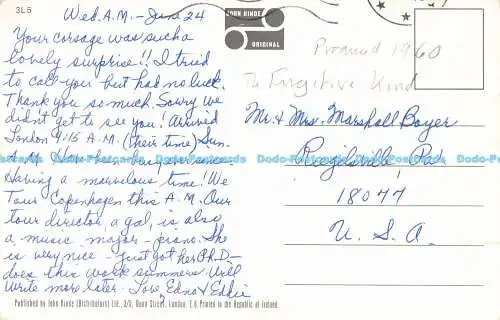 3L5
Wed. A.M. - June 24
Your corsage was such a
lovely surprise!! I tried
to call you but had no luck.
Thank you so much. Sorry we
didn't get to see you! Arrived
London 9:15 A.M. (their time) Sun.
A.M. Have been busy ever since.
Having a marvelous time! We
Tour Copenhagen this A.M. Our
tour director, a gal, is also
a music major - piano. She
is very nice - just got her Ph.D -
does this work summers. Will
write more later. Love, Edna & Eddie
JOHN HINDE
ORIGINAL
1960
The Fugitive Kind
Mr. & Mrs. Marshall Boyer
Pa.
18077
U. S. A.
Published by John Hinde (Distributors) Ltd., 2/5, Dean Street, London, Printed in the Republic of Ireland.